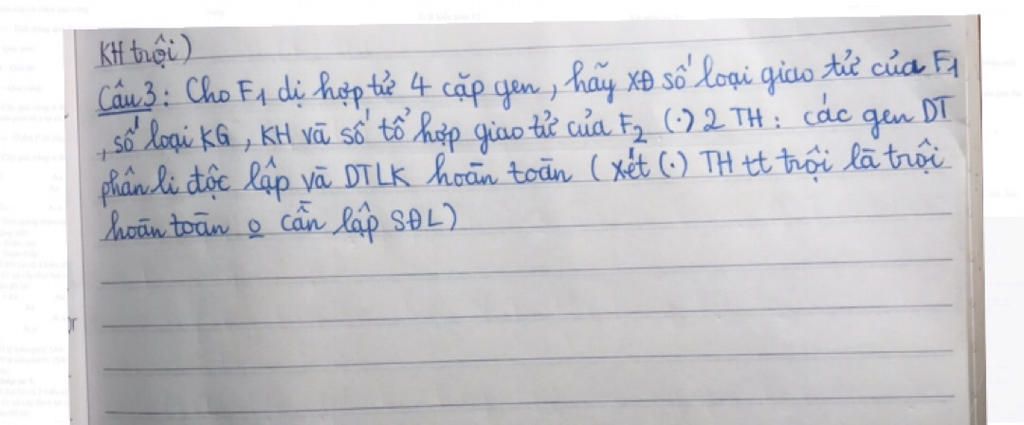 KH trội)
Câu 3: Cho F1 dị hợp tử 4 cặp gen, hãy XĐ số loại giao tử của F1
, số loại KG, KH và số tổ hợp giao tử của F2 (·) 2 TH: các gen DT
phân li độc lập và DTLK hoàn toàn (xét (·) TH tt trội là trội
hoàn toàn o cần lập SĐL)